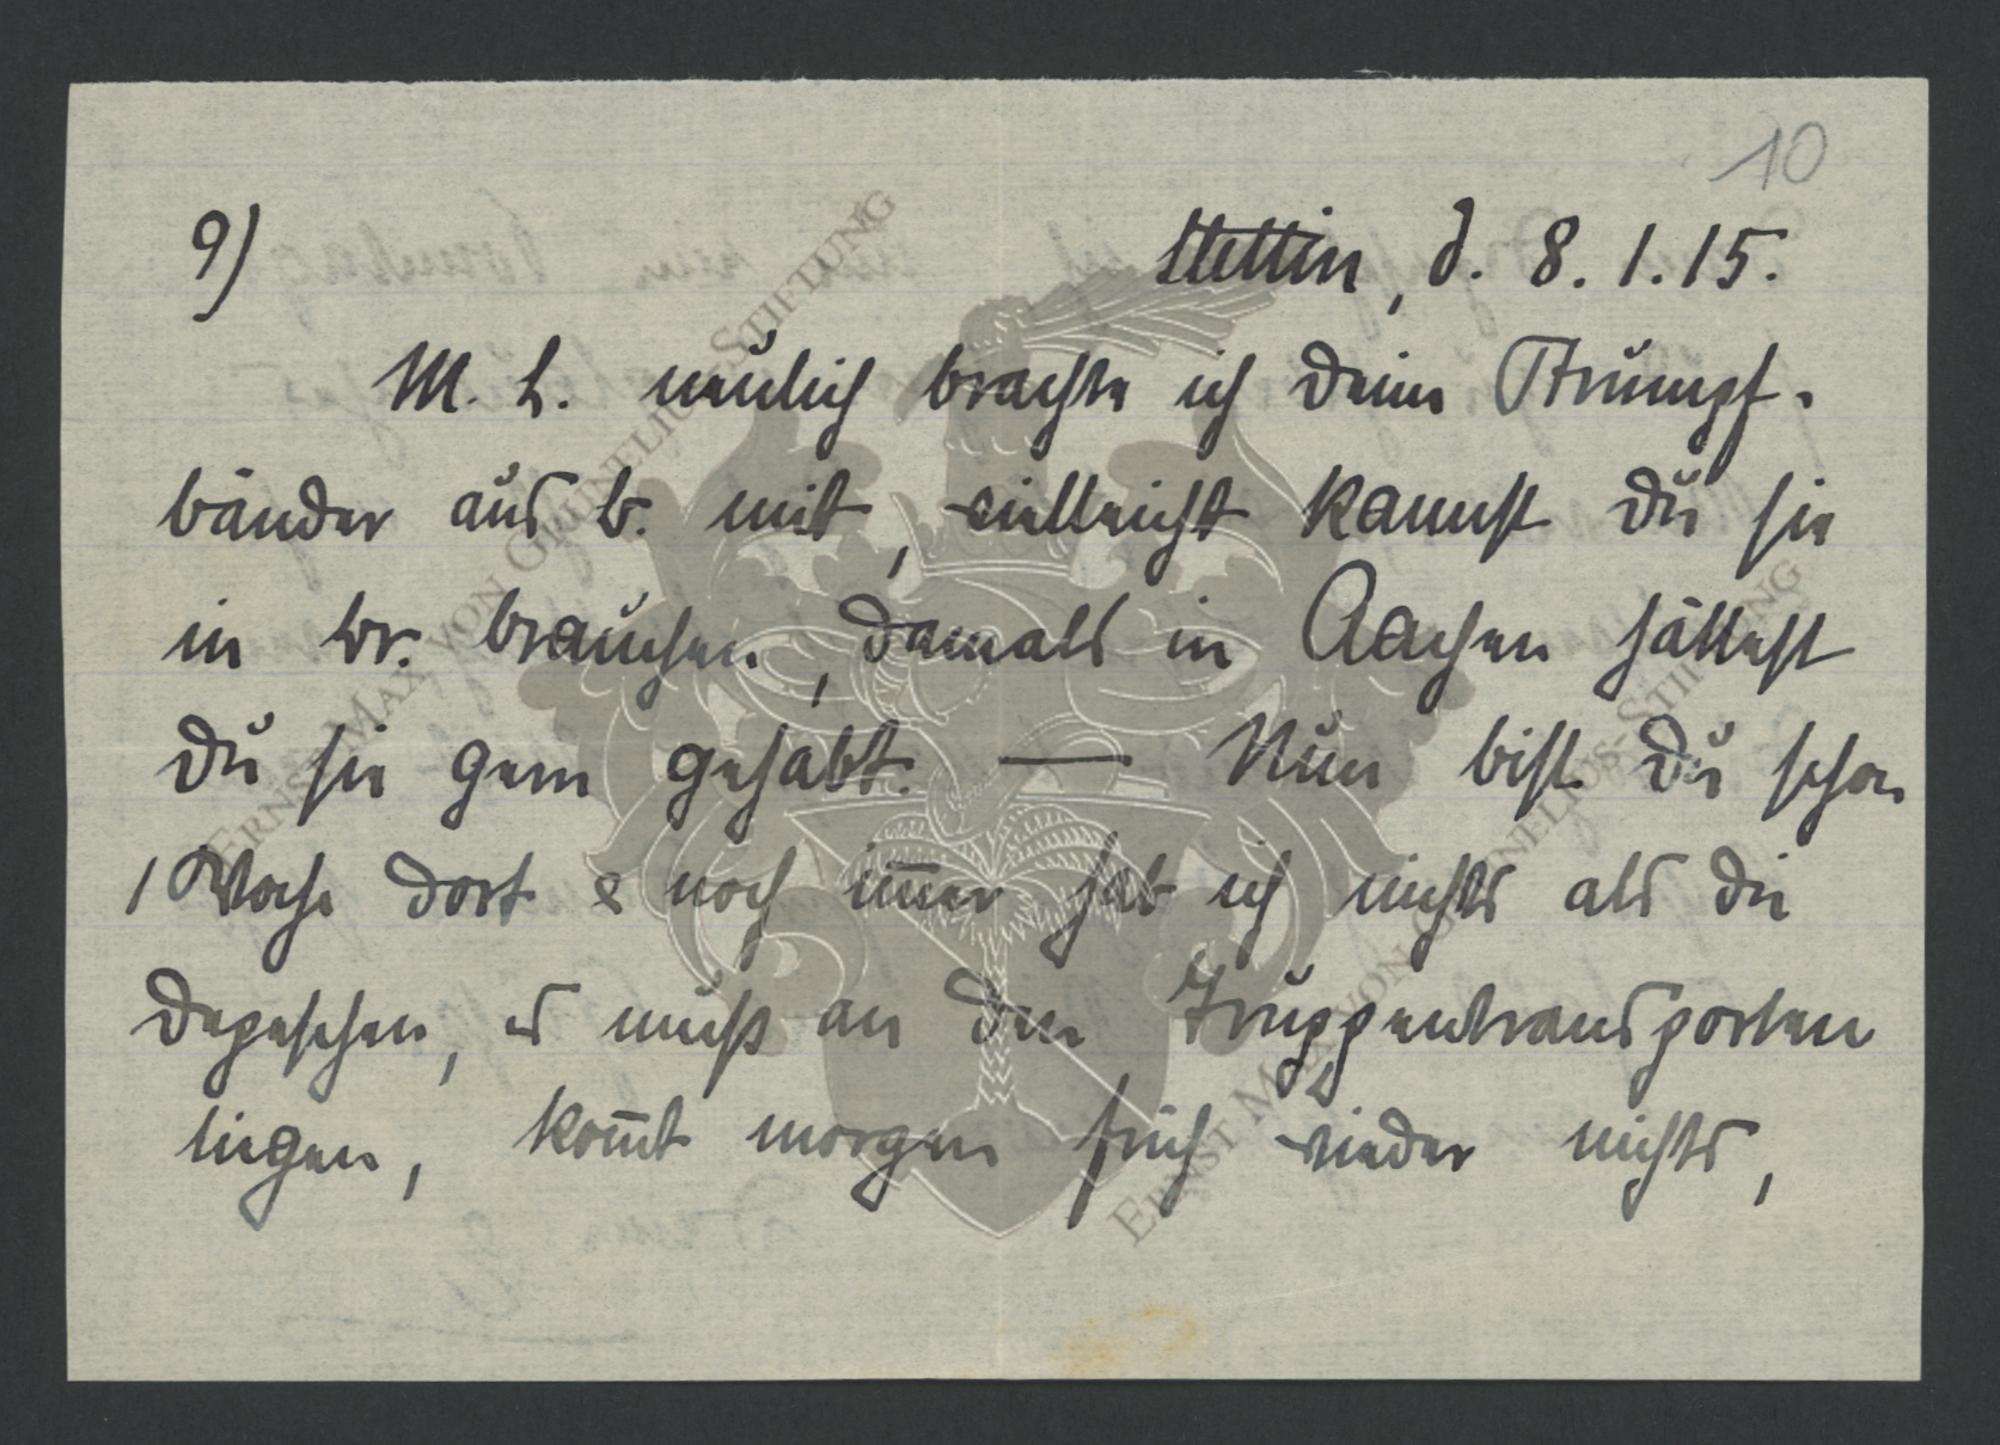 10
9) Stettin, d. 8.1.15.
M. L. neulich brachte ich Deine Strumpf-
bänder aus B. mit, vielleicht kannst Du sie
in Br. brauchen, damals in Aachen hättest
Du sie gern gehabt. — Nun bist Du schon
1 Woche dort & noch im̅er hab ich nichts als die
Depeschen, es muß an den Truppentransporten
liegen, kom̅t morgen früh wieder nichts,
ERNST MAX VON GRUNELIUS-STIFTUNG
ERNST MAX VON GRUNELIUS-STIFTUNG